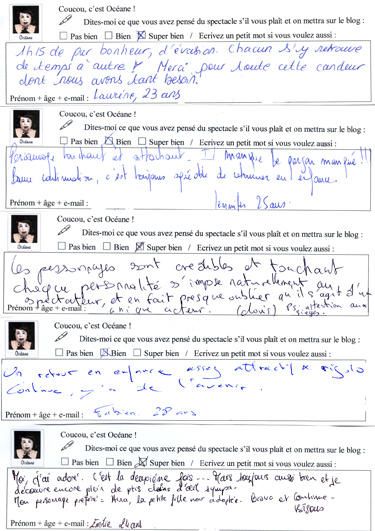 Coucou, c'est Océane !
Dites-moi ce que vous avez pensé du spectacle s'il vous plaît et on mettra sur le blog :
Pas bien Bien Super bien / Ecrivez un petit mot si vous voulez aussi :
1h15 de pur bonheur, d'évasion. Chacun s'y retrouve
de temps à autre ! Merci pour toute cette candeur
dont nous avons tant besoin.
Prénom + âge + e-mail : Laurine, 23 ans
Coucou, c'est Océane !
Dites-moi ce que vous avez pensé du spectacle s'il vous plaît et on mettra sur le blog :
Pas bien Bien Super bien / Ecrivez un petit mot si vous voulez aussi :
Personnage touchant et attachant. Il manque le garçon manqué !!!
Bonne continuation, c'est toujours agréable de retourner en enfance.
Prénom + âge + e-mail : Jennifer 25 ans
Coucou, c'est Océane !
Dites-moi ce que vous avez pensé du spectacle s'il vous plaît et on mettra sur le blog :
Pas bien Bien Super bien / Ecrivez un petit mot si vous voulez aussi :
Les personnages sont crédibles et touchant
chaque personnalité s'impose naturellement au
spectateur, et en fait presque oublier qu'il s'agit d'un
unique acteur. (clovis) Ps: attention aux
sièges.
Prénom + âge + e-mail :
Coucou, c'est Océane !
Dites-moi ce que vous avez pensé du spectacle s'il vous plaît et on mettra sur le blog :
Pas bien Bien Super bien / Ecrivez un petit mot si vous voulez aussi :
Un retour en enfance assez attractif & rigolo
Continue, y'a de l'avenir.
Prénom + âge + e-mail : Fabien 28 ans
Coucou, c'est Océane !
Dites-moi ce que vous avez pensé du spectacle s'il vous plaît et on mettra sur le blog :
Pas bien Bien Super bien / Ecrivez un petit mot si vous voulez aussi :
Moi, j'ai adoré. C'est la deuxième fois... Mais toujours aussi bien et je
découvre encore plein de ptits clins d'oeil sympa.
Mon personnage préféré : la petite fille adoptée. Bravo et continue
Bisous
Prénom + âge + e-mail : Emilie